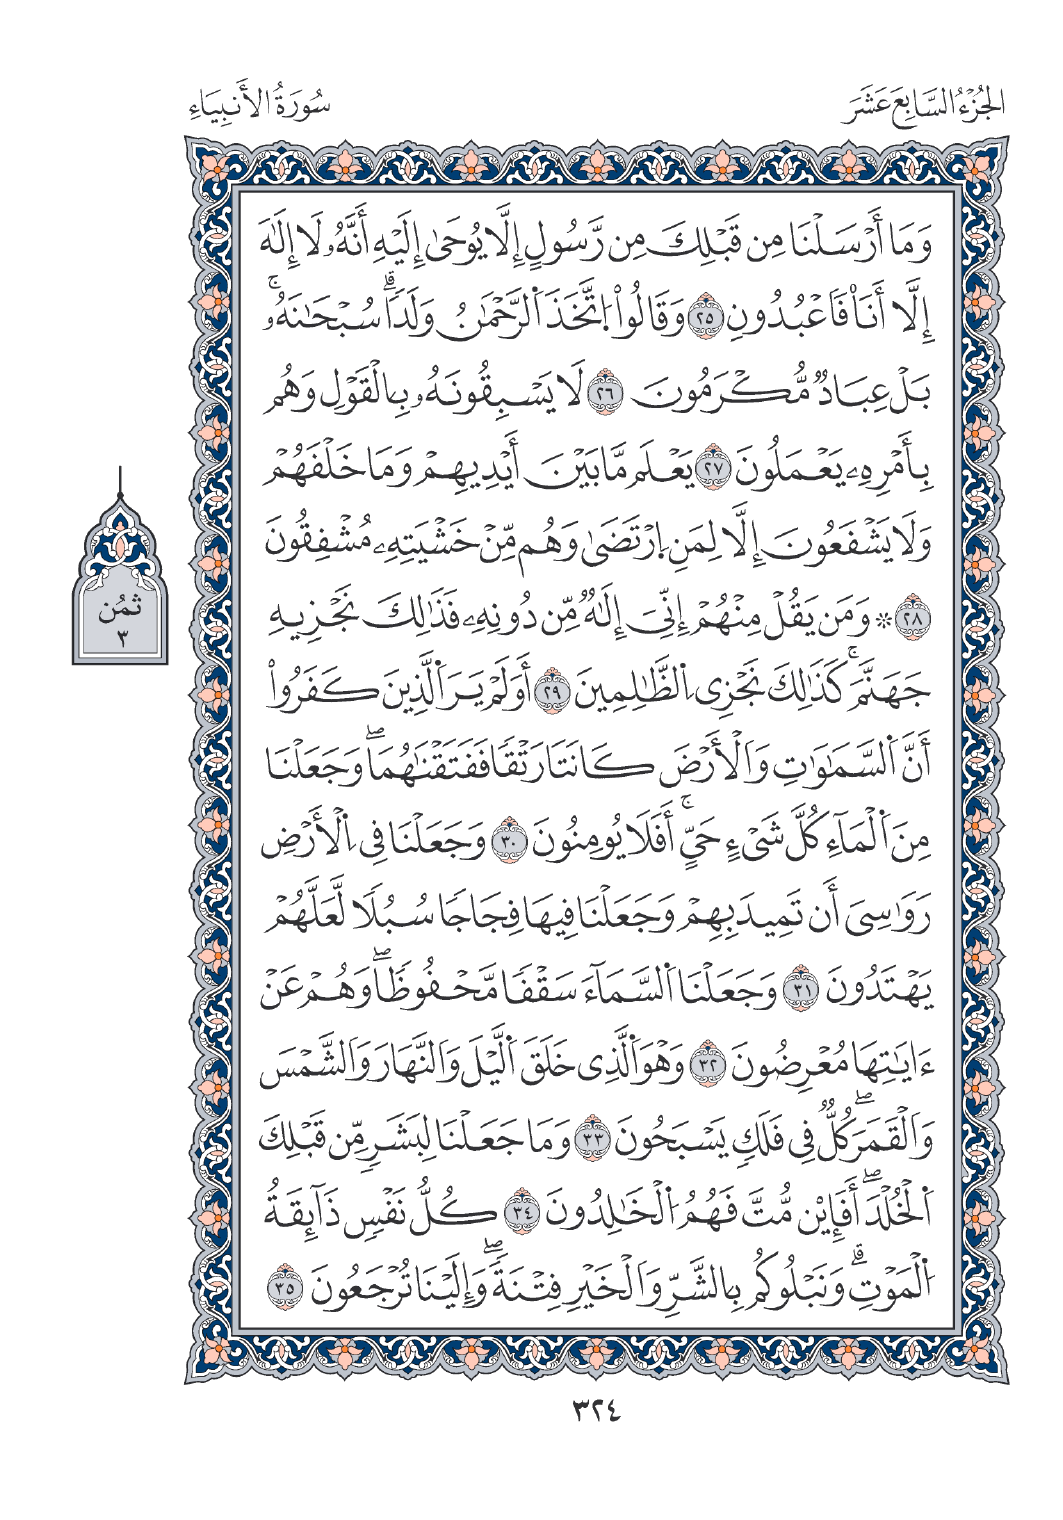 الجُزْءُ السَّابِعَ عَشَرَ
سُورَةُ الأَنبِيَاءِ
وَمَا أَرْسَلْنَا مِن قَبْلِكَ مِن رَّسُولٍ إِلَّا يُوحَىٰ إِلَيْهِ أَنَّهُۥ لَا إِلَٰهَ
إِلَّا أَنَا۠ فَاعْبُدُونِ ٢٥ وَقَالُوا۟ اتَّخَذَ اَلرَّحْمَٰنُ وَلَدًاۗ سُبْحَٰنَهُۥۚ
بَلْ عِبَادٌ مُّكْرَمُونَ ٢٦ لَا يَسْبِقُونَهُۥ بِالْقَوْلِ وَهُم
بِأَمْرِهِۦ يَعْمَلُونَ ٢٧ يَعْلَمُ مَا بَيْنَ أَيْدِيهِمْ وَمَا خَلْفَهُمْ
وَلَا يَشْفَعُونَ إِلَّا لِمَنِ اِرْتَضَىٰ وَهُم مِّنْ خَشْيَتِهِۦ مُشْفِقُونَ
٢٨ ۞ وَمَن يَقُلْ مِنْهُمْ إِنِّيَ إِلَٰهٌ مِّن دُونِهِۦ فَذَٰلِكَ نَجْزِيهِ
جَهَنَّمَۚ كَذَٰلِكَ نَجْزِي اِلظَّٰلِمِينَ ٢٩ أَوَلَمْ يَرَ اَلَّذِينَ كَفَرُوا۟
أَنَّ اَلسَّمَٰوَٰتِ وَالْأَرْضَ كَانَتَا رَتْقًا فَفَتَقْنَٰهُمَاۖ وَجَعَلْنَا
مِنَ اَلْمَآءِ كُلَّ شَيْءٍ حَيٍّۚ أَفَلَا يُومِنُونَ ٣٠ وَجَعَلْنَا فِي اِلْأَرْضِ
رَوَٰسِيَ أَن تَمِيدَ بِهِمْ وَجَعَلْنَا فِيهَا فِجَاجًا سُبُلًا لَّعَلَّهُمْ
يَهْتَدُونَ ٣١ وَجَعَلْنَا اَلسَّمَآءَ سَقْفًا مَّحْفُوظًاۖ وَهُمْ عَنْ
ءَايَٰتِهَا مُعْرِضُونَ ٣٢ وَهْوَ اَلَّذِي خَلَقَ اَلَّيْلَ وَالنَّهَارَ وَالشَّمْسَ
وَالْقَمَرَۖ كُلٌّ فِي فَلَكٍ يَسْبَحُونَ ٣٣ وَمَا جَعَلْنَا لِبَشَرٍ مِّن قَبْلِكَ
اَلْخُلْدَۖ أَفَإِيْن مُّتَّ فَهُمُ اُلْخَٰلِدُونَ ٣٤ كُلُّ نَفْسٍ ذَآئِقَةُ
اُلْمَوْتِۗ وَنَبْلُوكُم بِالشَّرِّ وَالْخَيْرِ فِتْنَةًۖ وَإِلَيْنَا تُرْجَعُونَ ٣٥
ثمُن
٣
٣٢٤